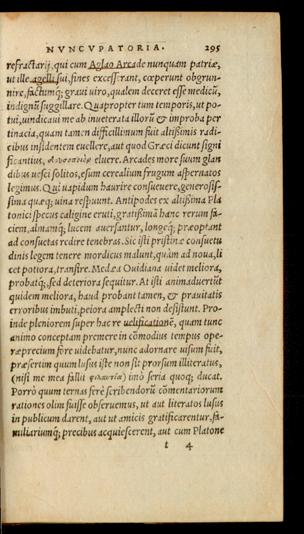 NVNCVPATORIA. 295
refractarij, qui cum Aglao Arcade nunquam patriæ,
ut ille agelli sui, fines excesserant, cœperunt obgrun-
nire, factumq́; graui uiro, qualem deceret esse medicū,
indignū suggillare. Quapropter tum temporis, ut po-
tui, uindicaui me ab inueterata illorū & improba per
tinacia, quam tamen difficillimum fuit altißimis radi-
cibus insidentem euellere, aut quod Græci dicunt signi
ficantius, eluere. Arcades more suum glan
dibus uesci solitos, esum cerealium frugum aspernatos
legimus. Qui uapidum haurire consueuere, generosis-
sima quæq; uina respuunt. Antipodes ex altißima Pla
tonici specus caligine eruti, gratißimā hanc rerum fa-
ciem, almamq́; lucem auersantur, longeq́; præoptant
ad consuetas redire tenebras. Sic isti pristinæ consuetu
dinis legem tenere mordicus malunt, quàm ad noua, li
cet potiora, transire. Medæa Ouidiana uidet meliora,
probatq́;, sed deteriora sequitur. At isti animaduertūt
quidem meliora, haud probant tamen, & prauitatis
erroribus imbuti, peiora amplecti non desistunt. Pro-
inde pleniorem super hac re uelificationē, quam tunc
animo conceptam premere in cōmodius tempus ope-
ræprecium fore uidebatur, nunc adornare uisum fuit,
præsertim quum lusus iste non sit prorsum illiteratus,
(nisi me mea fallit φιλαυτία) imò seria quoq; ducat.
Porrò quum ternas ferè scribendorū cōmentariorum
rationes olim fuisse obseruemus, ut aut literatos lusus
in publicum darent, aut ut amicis gratificarentur, fa-
miliariumq́; precibus acquiescerent, aut cum Platone
t 4